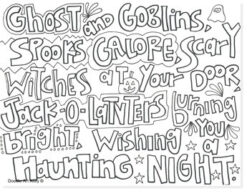 Ghost and Goblins,
Spooks Galore, Scary
Witches at Your Door
Jack-O-Lanters Burning
Bright, Wishing You a
Haunting Night.